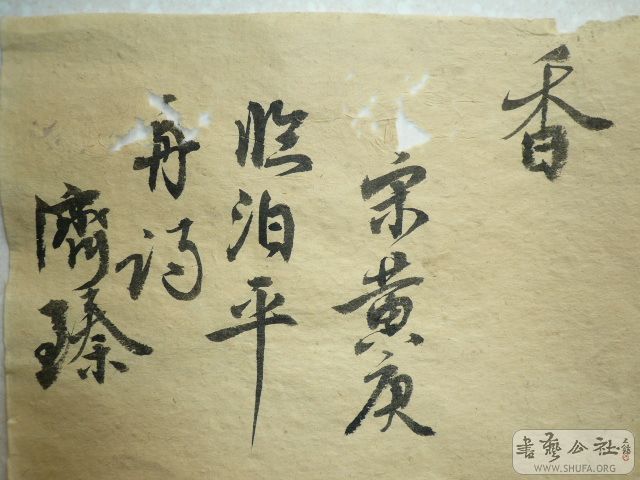 香
宋黄庚
临泊平
舟诗
濟臻
書藝公社
WWW.SHUFA.ORG